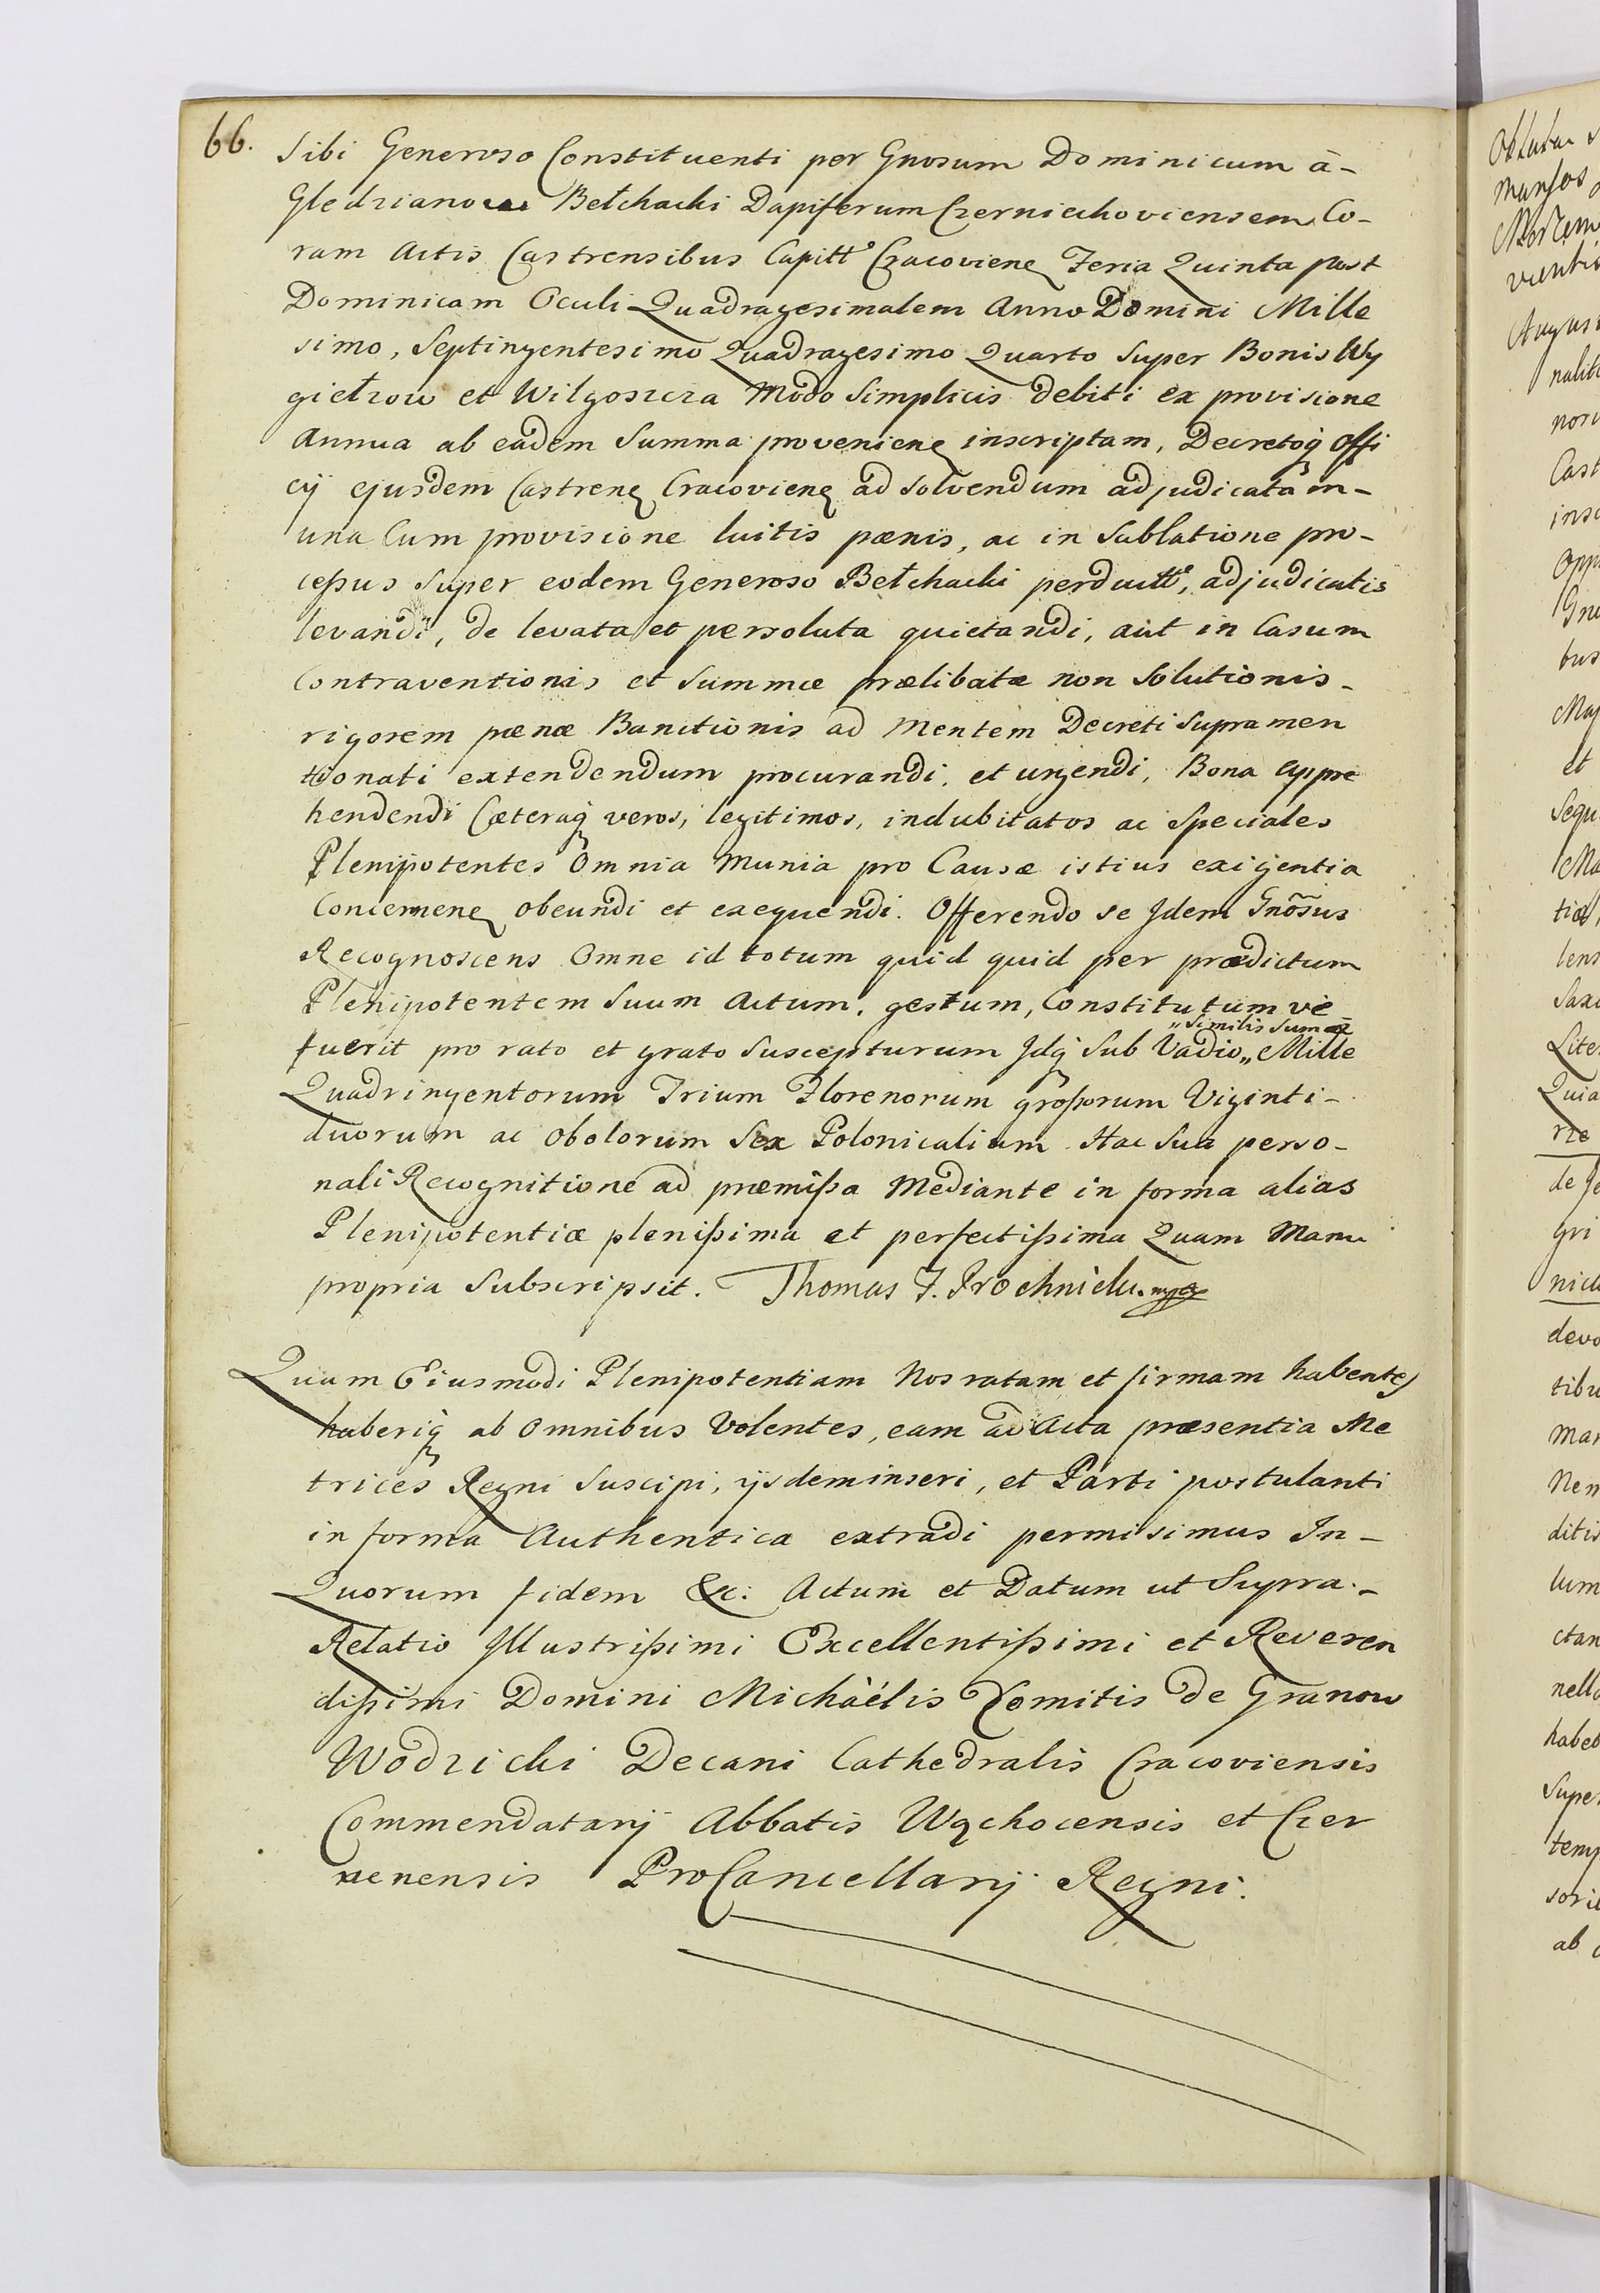 66.
Sibi Generoso Constituenti per Gnosum Dominicum à-
Gledzianow Bełchacki Dapiferum Czerniechoviensem Co-
ram Actis Castrensibus Capitt Cracovien Feria Quinta post
Dominicam Oculi Quadragesimalem Anno Domini Mille
simo, Septingentesimo Quadragesimo Quarto Super Bonis Wy
giełzow et Wilgoszcza Modo Simplicis debiti ex provisione
Annua ab eadem Summa provenien inscriptam, Decretoq Offi
cÿ ejusdem Castren Cracovien ad Solvendum adjudicatam-
una Cum provisione luitis pænis, ac in Sublatione pro-
cessus Super eodem Generoso Bełchacki perductt, adjudicatis
levandi, de levata et persoluta quietandi, aut in Casum
Contraventionis et Summæ prælibatæ non Solutionis-
rigorem pænæ Banitionis ad Mentem Decreti Supra men
tionati extendendum procurandi, et urgendi, Bona appre
hendendi Cæteraq veros, legitimos, indubitatos ac Speciales
Plenipotentes Omnia Munia pro Causæ istius exigentia
Concernen obeundi et exequendi. Offerendo se Idem Gnõsus
Recognoscens Omne id totum quid quid per prædictum
Plenipotentem Suum Actum, gestum, Constitutum ve
„Similis Summæ
fuerit pro rato et grato Suscepturum Idq Sub Vadio„ Mille
Quadringentorum Trium Florenorum grossorum Viginti-
duorum ac Obolorum Sex Polonicalium Hac Sua perso-
nali Recognitione ad præmissa Mediante in forma alias
Plenipotentiæ plenissima et perfectissima Quam Manu
propria Subscripsit. Thomas F. Prochnicki mpp
Quam Eiusmodi Plenipotentiam Nos ratam et firmam habentes
haberiq ab Omnibus Volentes, eam ad Acta præsentia Me
trices Regni Suscipi, ÿsdem inseri, et Parti postulanti
in forma Authentica extradi permisimus In-
Quorum fidem &c: Actum et Datum ut Supra.-
Relatio Illustrissimi Excellentissimi et Reveren
dissimi Domini Michaëlis Comitis de Granow
Wodzicki Decani Cathedralis Cracoviensis
Commendatarÿ Abbatis Wąchocensis et Czer
venensis ProCancellarÿ Regni.